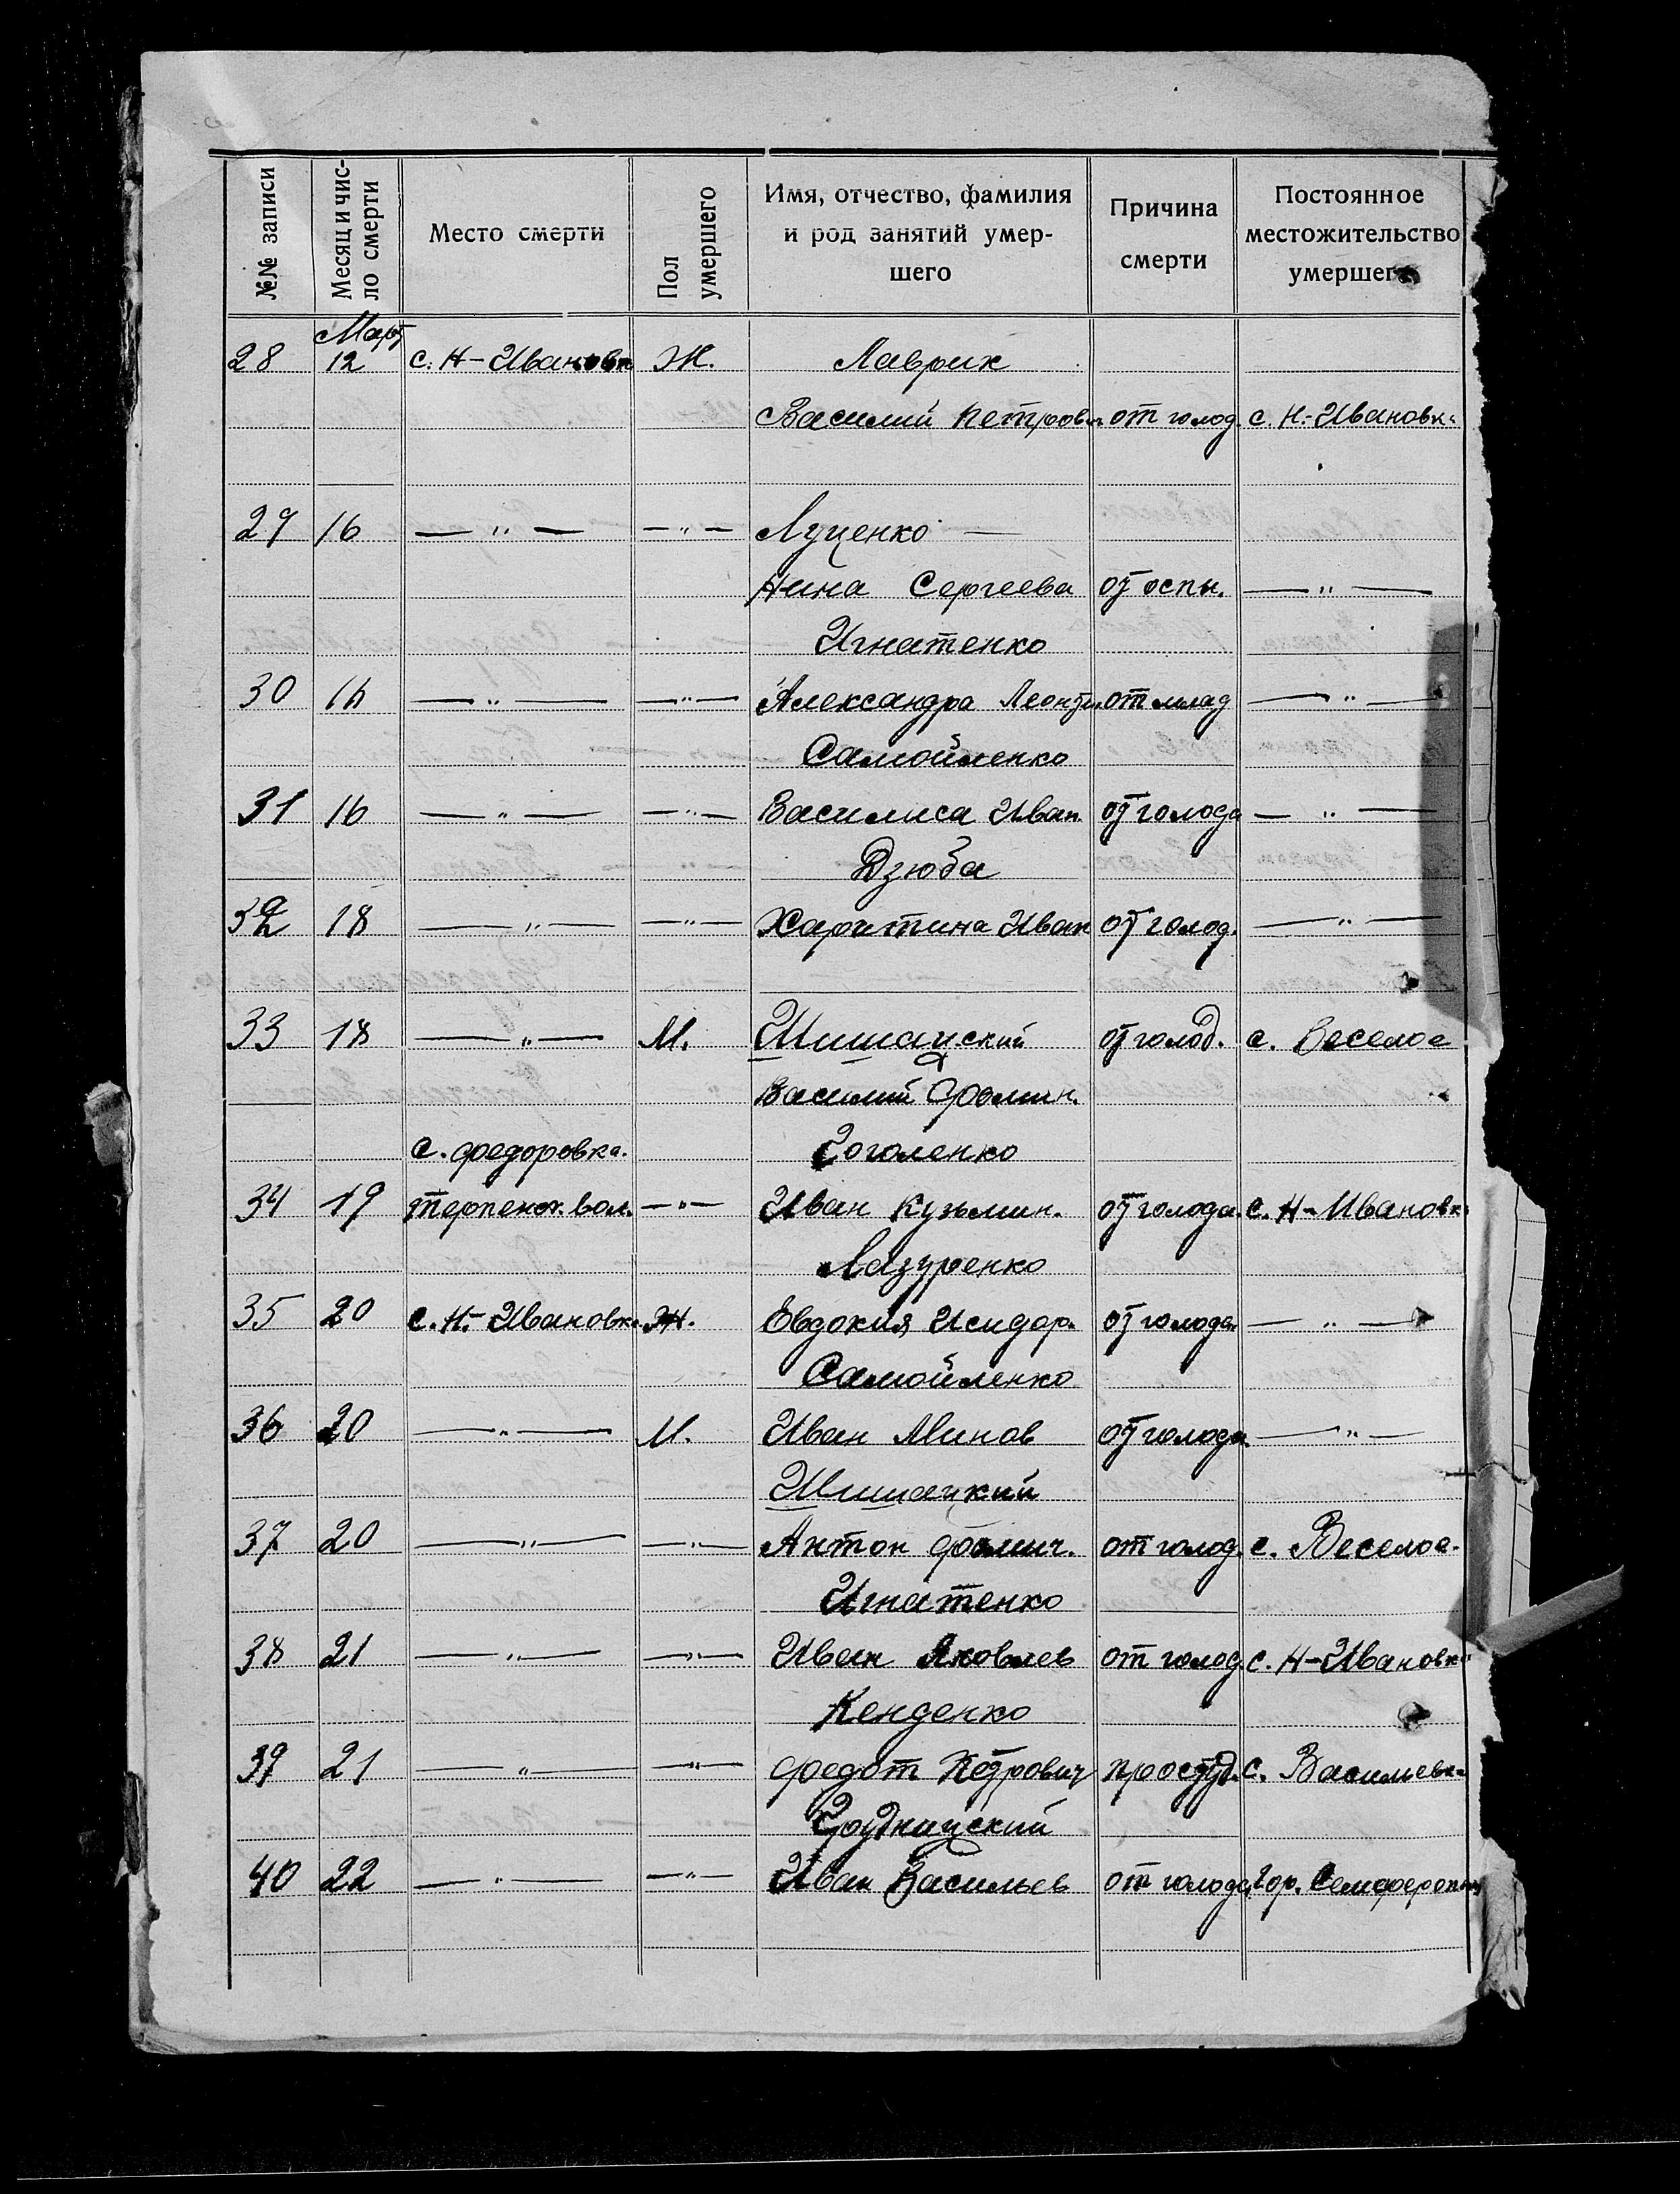 №№ записи
Месяц и чис-
ло смерти
Место смерти
Пол
умершего
Имя, отчество, фамилия
и род занятий умер-
шего
Причина
смерти
Постоянное
местожительство
умершег
Март
28 12 с. Н-Ивановк Ж. Лаврик
Василий Петров. от голод. с. Н.-Ивановк.
29 16 — " — — " — Луценко —
Нина Сергеева от оспы. — " —
Игнатенко
30 16 — " — — " — Александра Леонт. от млад — " —
Самойленко
31 16 — " — — " — Василиса Иван. от голода — " —
Дзюба
32 18 — " — — " — Харитина Иван от голод. — " —
33 18 — " — М. Шишацкий от голод. с. Веселое
Василий Фомин.
с. Федоровка. Гоголенко
34 19 Терпен. вол. — " — Иван Кузьмин. от голода. с. Н-Ивановк.
Лазуренко
35 20 с. Н.-Ивановк. Ж. Евдокия Исидор. от голода. — " —
Самойленко
36 20 — " — М. Иван Минов от голода. — " —
Шишацкий
37 20 — " — — " — Антон Фомич. от голод. с. Веселое.
Игнатенко
38 21 — " — — " — Иван Яковлев от голод с. Н-Ивановк
Кенденко
39 21 — " — — " — Федот Петрович простуд. с. Васильевк
40 22 — " — — " — Иван Васильев от голода гор. Семферополь